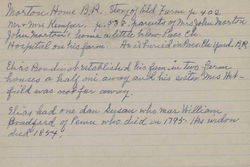 Morton's Home B.R. Story of Old Farm p 402
Mr + Mrs Kemper. p. 036, parents of Mrs John Morton
John Morton's home a little below Poss Cn.
Hospital on his farm. He is buried in Ross the yard. B.R
Elias Boudinot established his firm in two farm
houses a half mi away and his sister Mrs Hat-
field was not far away.
Elias had one dau Susan who mar William
Bradford of Penn who died in 1795. His widow
died 1854.